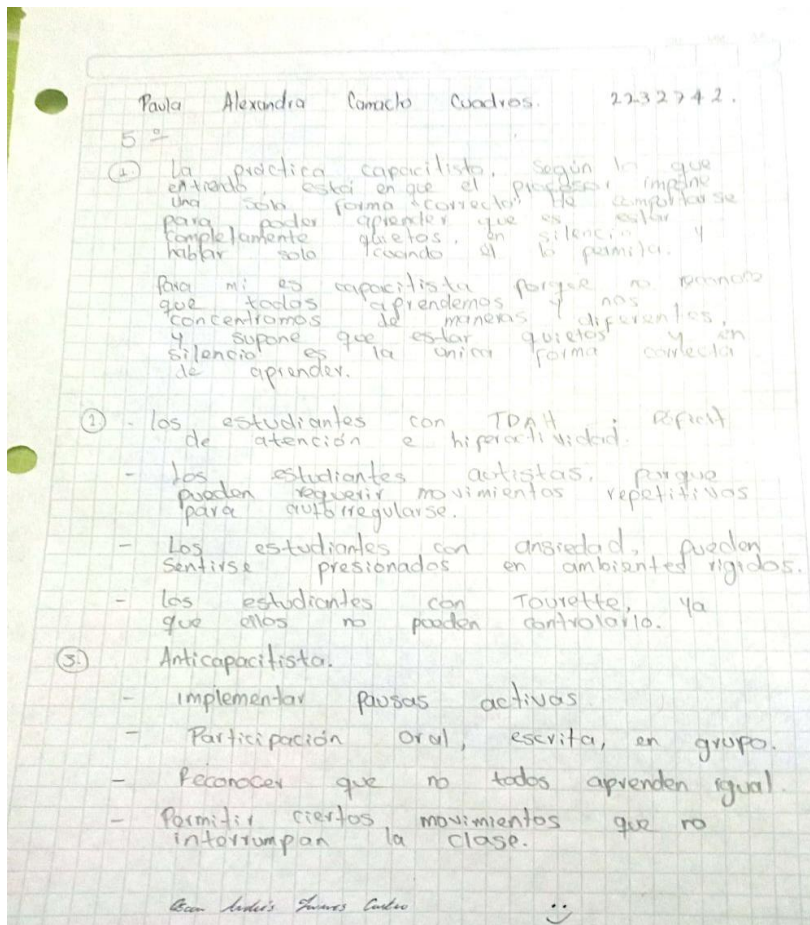 Paula Alexandra Camacho Cuadros. 2232742.
5º
1. La práctica capacitista, según lo que
entiendo, está en que el profesor impone
una sola forma "correcta" de comportarse
para poder aprender que es estar
completamente quietos, en silencio y
hablar solo cuando él lo permita.
Para mi es capacitista porque no reconoce
que todos aprendemos y nos
concentramos de maneras diferentes,
y supone que estar quietos y en
silencio es la unica forma correcta
de aprender.
2. - los estudiantes con TDAH: Déficit
de atención e hiperactividad.
- Los estudiantes autistas, porque
pueden requerir movimientos repetitivos
para autorregularse.
- Los estudiantes con ansiedad, pueden
sentirse presionados en ambientes rigidos.
- los estudiantes con Tourette, ya
que ellos no pueden controlarlo.
3. Anticapacitista.
- implementar pausas activas
- Participación oral, escrita, en grupo.
- Reconocer que no todos aprenden igual.
- Permitir ciertos movimientos que no
interrumpan la clase.
Andrés